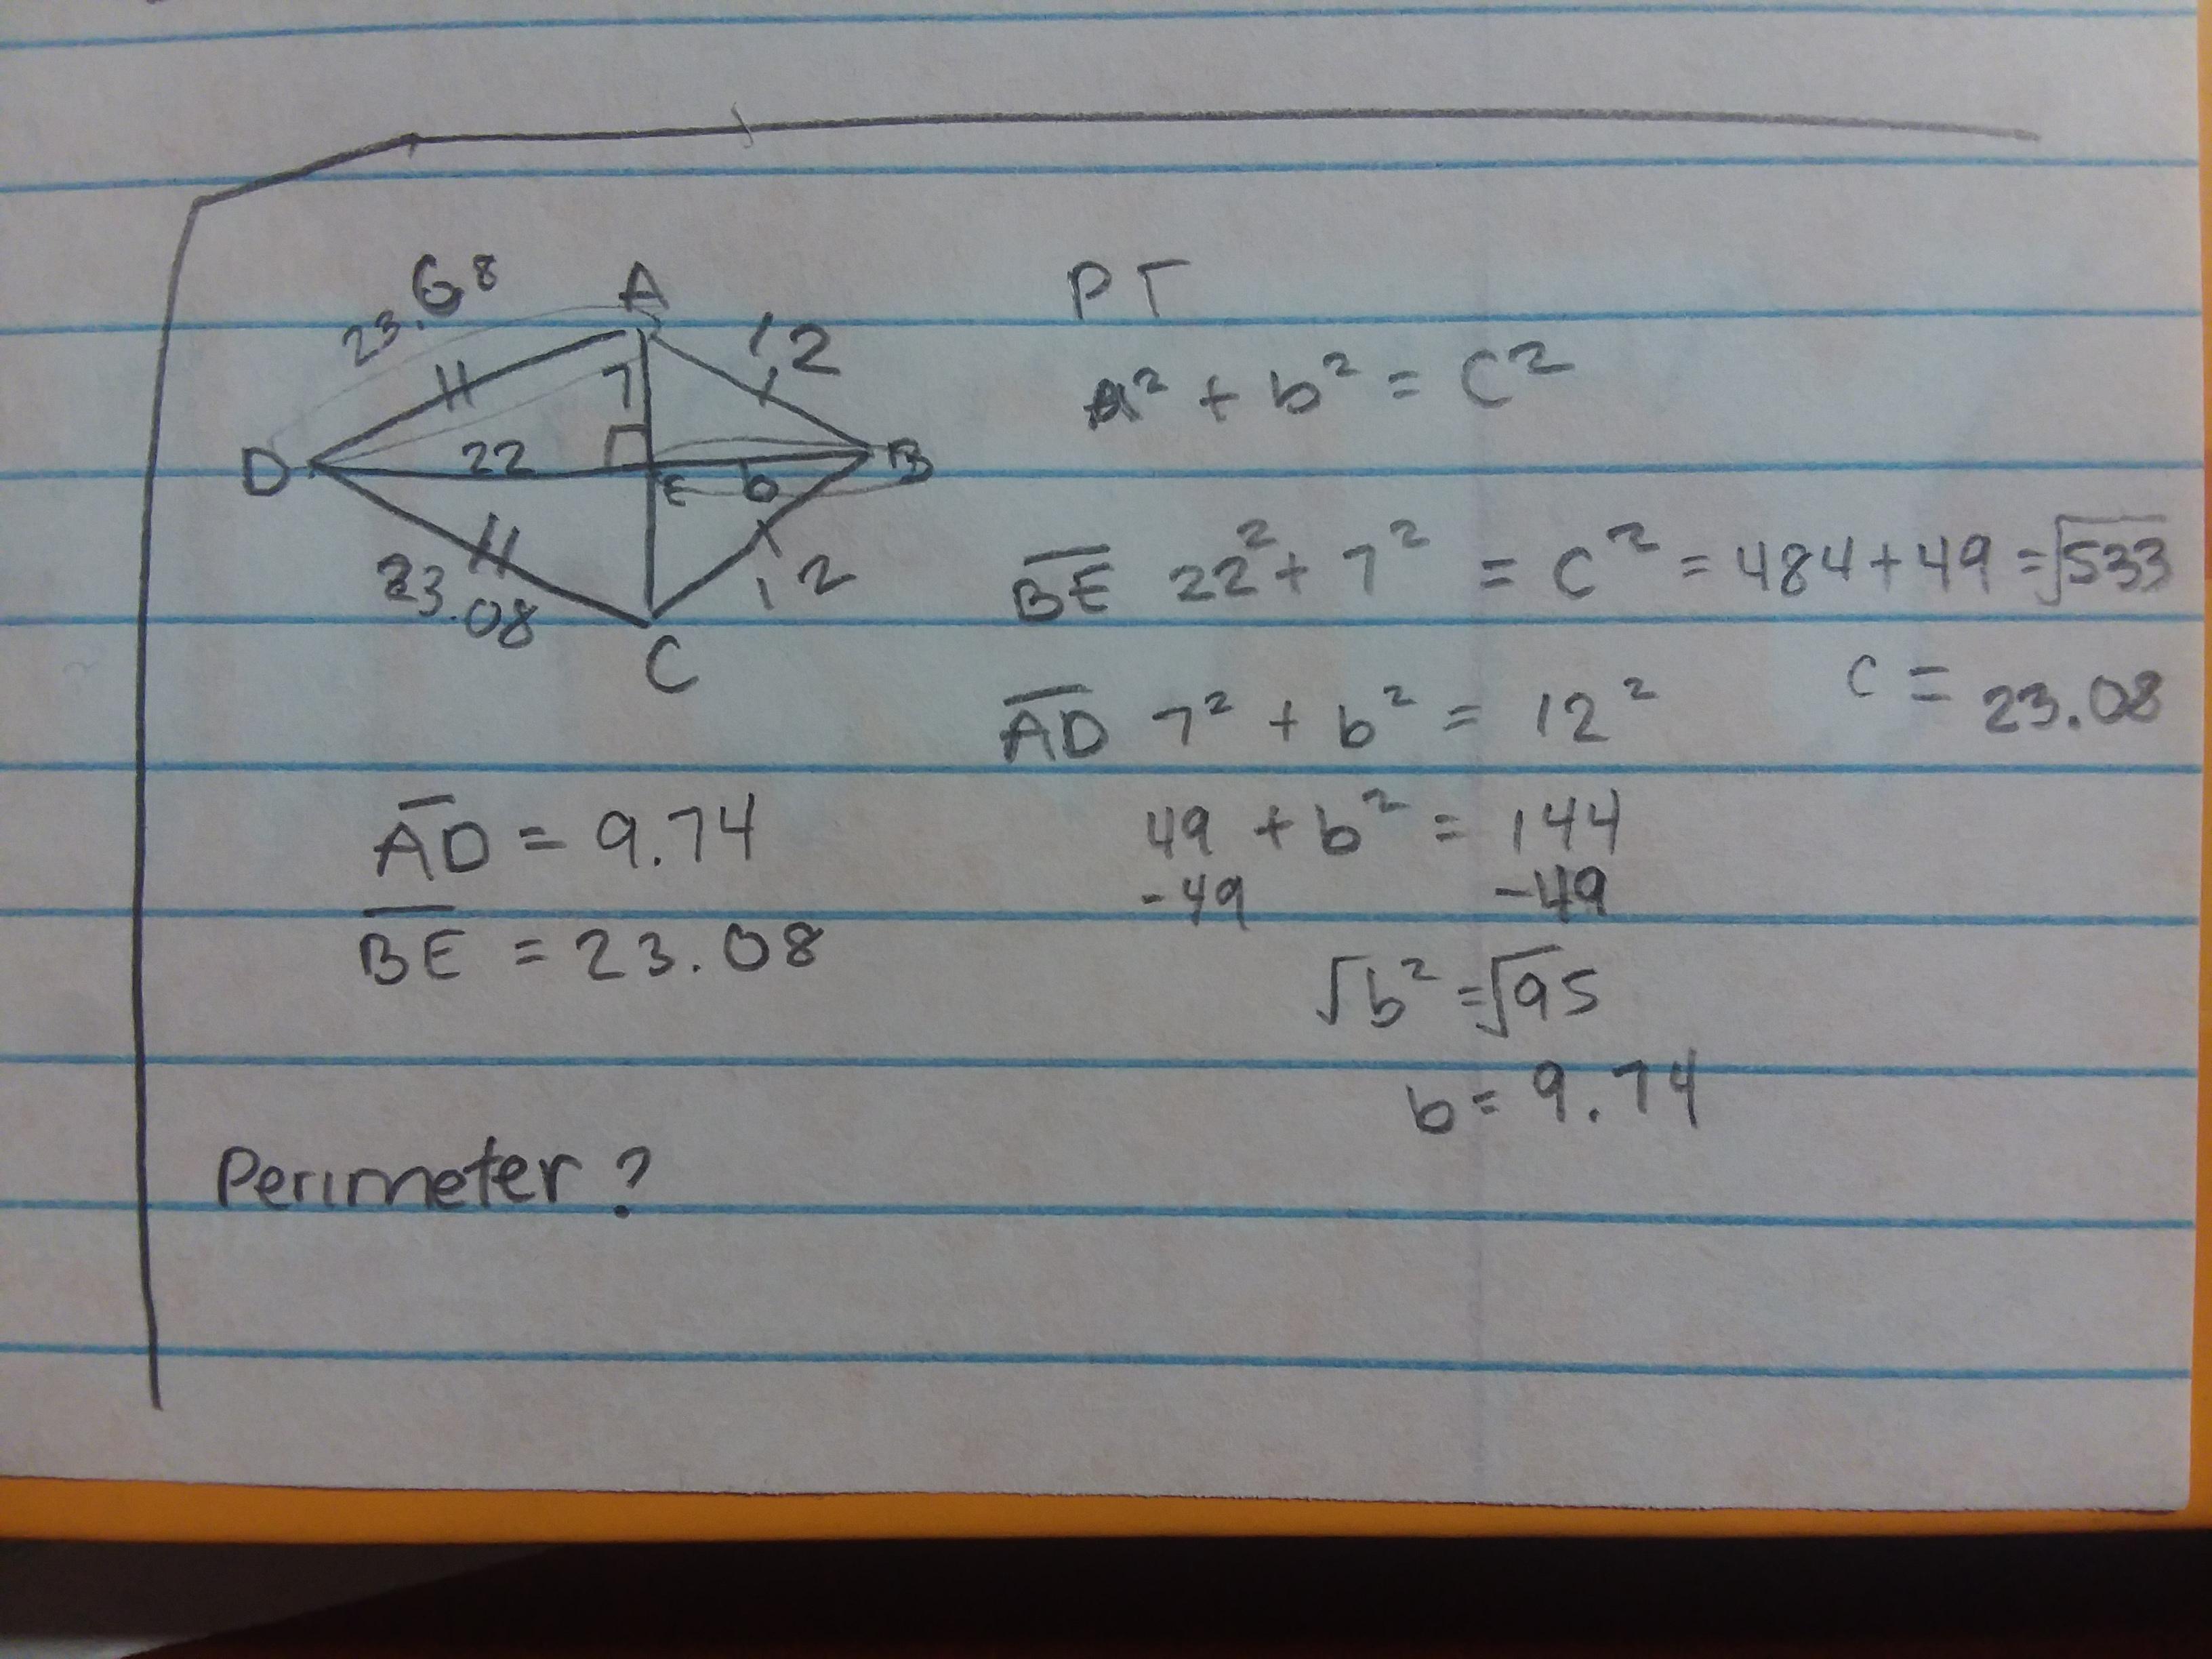 23.68
A
12
7
D
22
E
b
B
23.08
12
C
PT
a² + b² = C²
BE 22² + 7² = C² = 484 + 49 = √533
C = 23.08
AD 7² + b² = 12²
49 + b² = 144
-49 -49
√b² = √95
b = 9.74
AD = 9.74
BE = 23.08
Perimeter?